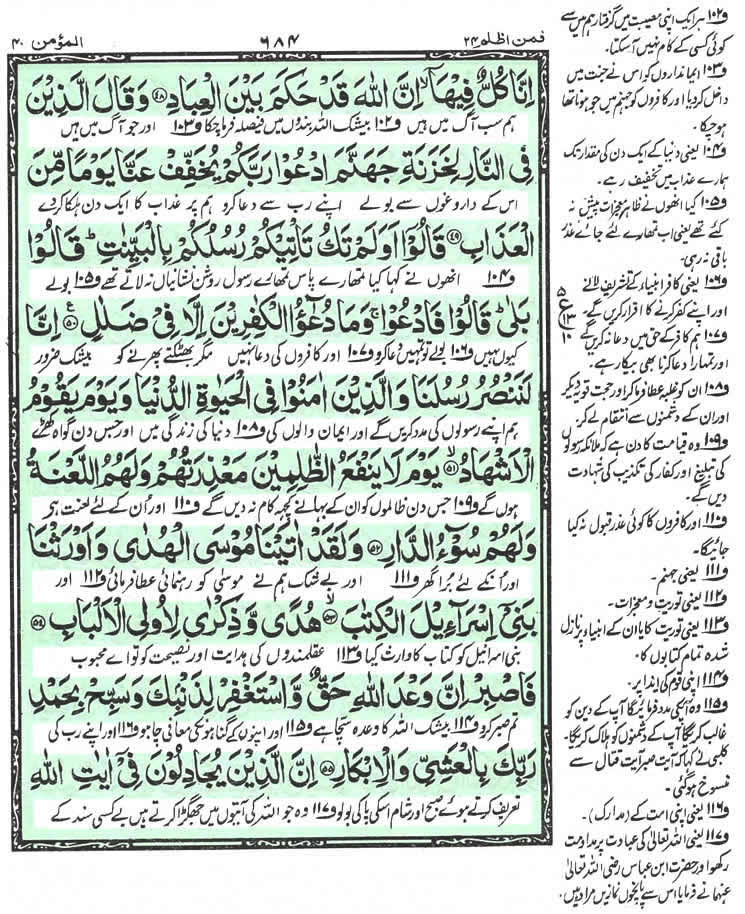 المؤمن ۴۰
۶۸۴
فمن اظلم ۲۴
اِنَّا كُلٌّ فِیْهَاۤ ۙ اِنَّ اللّٰهَ قَدْ حَكَمَ بَیْنَ الْعِبَادِ ﴿۴۸﴾ وَقَالَ الَّذِیْنَ
ہم سب آگ میں ہیں ف۱۰۲ بیشک اللہ بندوں میں فیصلہ فرما چکا ف۱۰۳ اور جو آگ میں ہیں
فِی النَّارِ لِخَزَنَةِ جَهَنَّمَ ادْعُوْا رَبَّكُمْ یُخَفِّفْ عَنَّا یَوْمًا مِّنَ
اس کے داروغوں سے بولے اپنے رب سے دعا کرو ہم پر عذاب کا ایک دن ہلکا کردے
الْعَذَابِ ﴿۴۹﴾ قَالُوْۤا اَوَلَمْ تَكُ تَاْتِیْكُمْ رُسُلُكُمْ بِالْبَیِّنٰتِ ؕ قَالُوْا
ف۱۰۴ انھوں نے کہا کیا تمھارے پاس تمھارے رسول روشن نشانیاں نہ لاتے تھے ف۱۰۵ بولے
بَلٰی ؕ قَالُوْا فَادْعُوْا ۚ وَمَا دُعٰٓؤُا الْكٰفِرِیْنَ اِلَّا فِیْ ضَلٰلٍ ﴿۵۰﴾ اِنَّا
کیوں نہیں ف۱۰۶ بولے تو تمہیں دعا کرو ف۱۰۷ اور کافروں کی دعا نہیں مگر بھٹکتے پھرنے کو بیشک ضرور
لَنَنْصُرُ رُسُلَنَا وَالَّذِیْنَ اٰمَنُوْا فِی الْحَیٰوةِ الدُّنْیَا وَیَوْمَ یَقُوْمُ
ہم اپنے رسولوں کی مدد کریں گے اور ایمان والوں کی ف۱۰۸ دنیا کی زندگی میں اور جس دن گواہ کھڑے
الْاَشْهَادُ ﴿۵۱﴾ یَوْمَ لَا یَنْفَعُ الظّٰلِمِیْنَ مَعْذِرَتُهُمْ وَلَهُمُ اللَّعْنَةُ
ہوں گے ف۱۰۹ جس دن ظالموں کو ان کے بہانے کچھ کام نہ دیں گے ف۱۱۰ اور اُن کے لئے لعنت ہے
وَلَهُمْ سُوْٓءُ الدَّارِ ﴿۵۲﴾ وَلَقَدْ اٰتَیْنَا مُوْسَی الْهُدٰی وَاَوْرَثْنَا
اور اُنکے لئے بُرا گھر ف۱۱۱ اور بے شک ہم نے موسیٰ کو رہنمائی عطا فرمائی ف۱۱۲ اور
بَنِیْۤ اِسْرَآءِیْلَ الْكِتٰبَ ﴿۵۳﴾ هُدًی وَّذِكْرٰی لِاُولِی الْاَلْبَابِ ﴿۵۴﴾
بنی اسرائیل کو کتاب کا وارث کیا ف۱۱۳ عقلمندوں کی ہدایت اور نصیحت کو تو اے محبوب
فَاصْبِرْ اِنَّ وَعْدَ اللّٰهِ حَقٌّ وَّاسْتَغْفِرْ لِذَنْۢبِكَ وَسَبِّحْ بِحَمْدِ
تم صبر کرو ف۱۱۴ بیشک اللہ کا وعدہ سچا ہے ف۱۱۵ اور اپنوں کے گناہوں کی معافی چاہو ف۱۱۶ اور اپنے رب کی
رَبِّكَ بِالْعَشِیِّ وَالْاِبْكَارِ ﴿۵۵﴾ اِنَّ الَّذِیْنَ یُجَادِلُوْنَ فِیْۤ اٰیٰتِ اللّٰهِ
تعریف کرتے ہوئے صبح اور شام اسکی پاکی بولو ف۱۱۷ وہ جو اللہ کی آیتوں میں جھگڑا کرتے ہیں بے کسی سند کے
۵
ع
۱۳
۱۰
ف۱۰۲ ہر ایک اپنی مصیبت میں گرفتار ہم میں سے
کوئی کسی کے کام نہیں آسکتا۔
ف۱۰۳ ایمانداروں کو اس نے جنت میں
داخل کردیا اور کافروں کو جہنم میں جو ہونا تھا
ہوچکا۔
ف۱۰۴ یعنی دنیا کے ایک دن کی مقدار تک
ہمارے عذاب میں تخفیف رہے۔
ف۱۰۵ کیا انھوں نے ظاہر معجزات پیش نہ
کئے تھے یعنی اب تمھارے لئے جائے عذر
باقی نہ رہی۔
ف۱۰۶ یعنی کافر انبیاء کے تشریف لانے
اور اپنے کفر کرنے کا اقرار کریں گے۔
ف۱۰۷ ہم کافر کے حق میں دعا نہ کریں گے
اور تمہارا دعا کرنا بھی بیکار ہے۔
ف۱۰۸ ان کو غلبہ عطا فرما کر اور حجت قویہ دیکر
اور ان کے دشمنوں سے انتقام لے کر۔
ف۱۰۹ وہ قیامت کا دن ہے کہ ملائکہ رسولوں
کی تبلیغ اور کفار کی تکذیب کی شہادت
دیں گے۔
ف۱۱۰ اور کافروں کا کوئی عذر قبول نہ کیا
جائیگا۔
ف۱۱۱ یعنی جہنم۔
ف۱۱۲ یعنی توریت و معجزات۔
ف۱۱۳ یعنی توریت کا یا ان کے انبیاء پر نازل
شدہ تمام کتابوں کا۔
ف۱۱۴ اپنی قوم کی ایذا پر۔
ف۱۱۵ وہ آپکی مدد فرمائیگا آپ کے دین کو
غالب کریگا آپ کے دشمنوں کو ہلاک کریگا۔
کلبی نے کہا کہ آیت صبر آیت قتال سے
منسوخ ہوگئی۔
ف۱۱۶ یعنی اپنی امت کے (مدارک)۔
ف۱۱۷ یعنی اللہ تعالیٰ کی عبادت پر مداومت
رکھو اور حضرت ابن عباس رضی اللہ تعالیٰ
عنہما نے فرمایا اس سے پانچوں نمازیں مراد ہیں۔